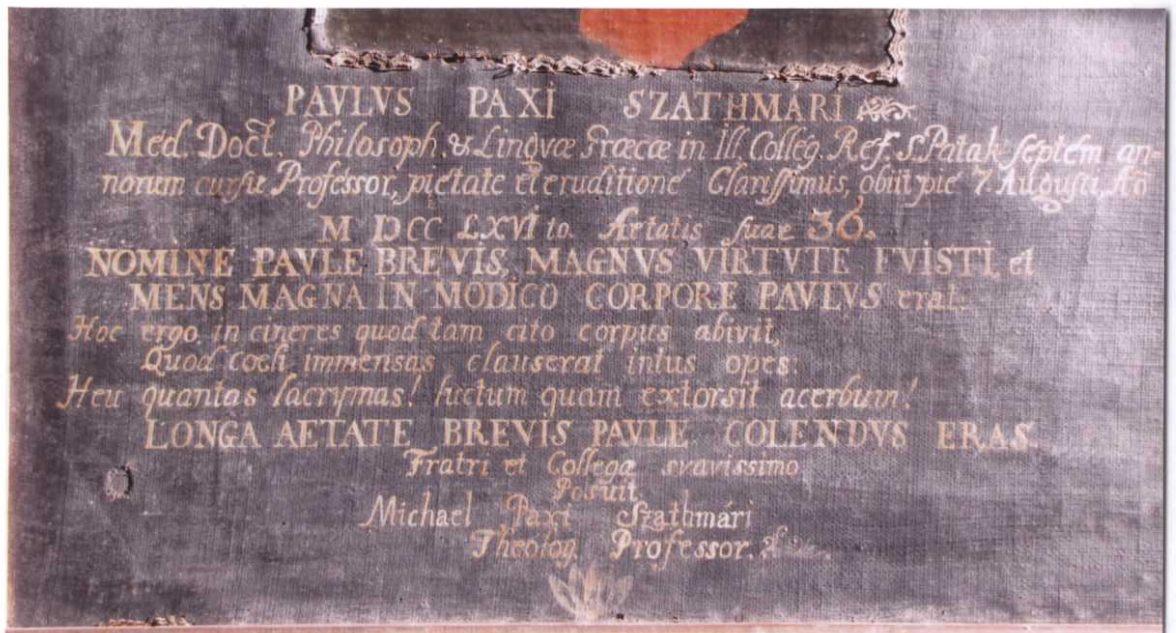 PAVLVS PAXI SZATHMÁRI
Med. Doct. Philosoph. & Lingvæ Græcæ in Ill. Colleg. Ref. S. Patak septem an-
norum cursu Professor, pietate et eruditione Clarissimus, obiit pie 7 Augusti, Aō
M DCC LXVI to. Aetatis suae 36.
NOMINE PAVLE BREVIS, MAGNVS VIRTVTE FVISTI, et
MENS MAGNA IN MODICO CORPORE PAVLVS erat.
Hoc ergo in cineres quod tam cito corpus abivit,
Quod coeli immensas clauserat intus opes:
Heu quantas lacrymas! luctum quam extorsit acerbum!
LONGA AETATE BREVIS PAVLE COLENDVS ERAS.
Fratri et Collegæ svavissimo
Posuit
Michael Paxi Szathmári
Theolog. Professor.